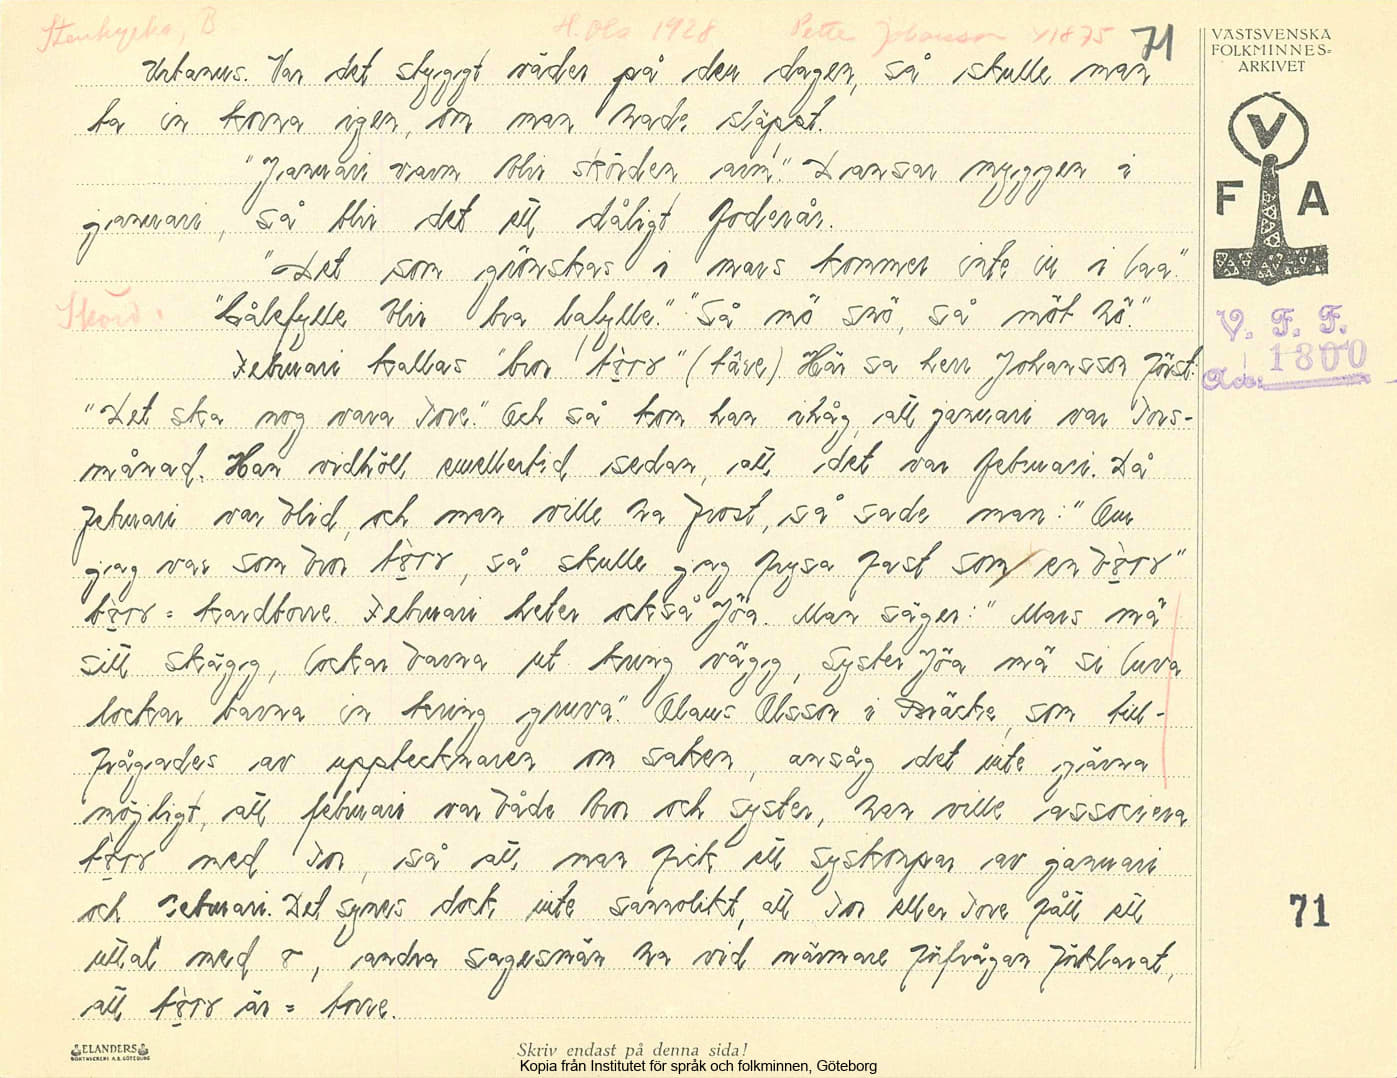 Stenkyrka, B H. Ola 1928 Petter Johansson f. 1875 71
VÄSTSVENSKA
FOLKMINNES-
ARKIVET
V
F A
Urbanus. Var det styggt väder på den dagen, så skulle man
ta in korna igen, om man hade släppt.
"Januari varm blir skörden arm." Dansar myggen i
januari, så blir det ett dåligt foderår.
"Det som grönskas i mars kommer inte in i laa."
Skörd.
"Kålefylle blir bra lafylle." "Så mö snö, så möt hö."
V. F. F.
Februari kallas "bror (tåre). Här sa herr Johansson först:
Acc: 1800
"Det ska nog vara Tore." Och så kom han ihåg, att januari var Tors-
månad. Han vidhöll emellertid sedan, att det var februari. Då
februari var blid, och man ville ha frost, så sade man: "Om
jag var som bror , så skulle jag frysa fast som en
= kardborre. Februari heter också Jöa. Man säger: "Mars mä
sitt skägg, lockar barna ut kring vägg, Syster Jöa mä si luva
lockar barna in kring gruva." Olaus Olsson i Bräcke, som till-
frågades av upptecknaren om saken, ansåg det inte gärna
möjligt, att februari var både bror och syster, han ville associera
med Tor, så att man fick ett syskonpar av januari
och februari. Det synes dock inte sannolikt, att Tor eller Tore fått ett
71
uttal med , andra sagesmän ha vid närmare förfrågan förklarat,
att är = borre.
ELANDERS
BOKTRYCKERI A.B. GÖTEBORG
Skriv endast på denna sida!
Kopia från Institutet för språk och folkminnen, Göteborg